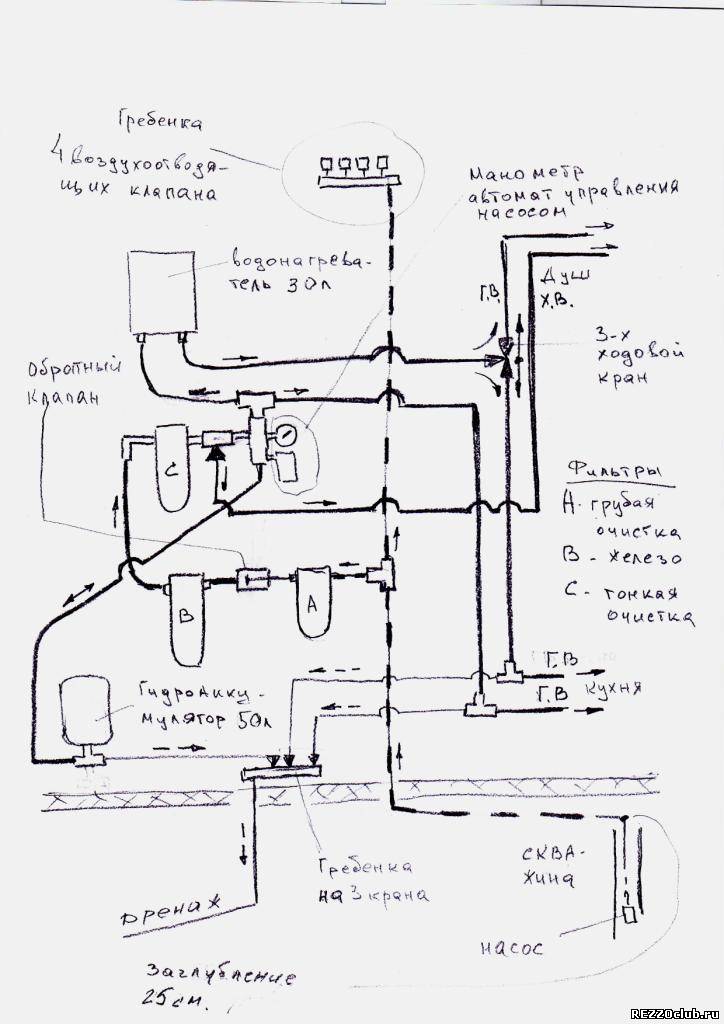 Гребенка
4 воздухоотводя-
щих клапана
Манометр
автомат управления
насосом
водонагрева-
тель 30л
Г.В.
Душ
Х.В.
3-х
ходовой
кран
Обратный
клапан
C
Фильтры
А- грубая
очистка
В - железо
С - тонкая
очистка
B
A
Гидроакку-
мулятор 50л
Г.В
Г.В
кухня
Гребенка
на 3 крана
дренаж
СКВА-
жина
насос
Заглубление
25см.
REZZOclub.ru